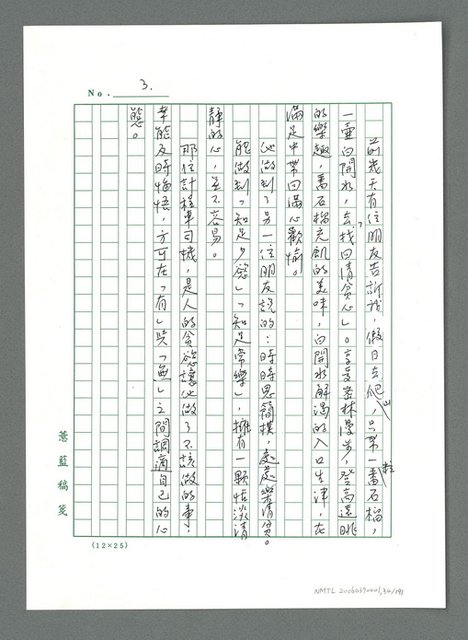 No. 3.
前幾天有位朋友告訴我,假日去爬山,只帶一粒番石榴,
一壺白開水,去「找回清貧心」。享受密林漫步,登高遠眺
的樂趣,番石榴充飢的美味,白開水解渴的入口生津,在
滿足中帶回滿心歡愉。
他做到了另一位朋友說的:時時思簡樸,處處樂清貧。
能做到「知足少慾」,「知足常樂」,擁有一顆恬淡清
靜的心,並不容易。
那位計程車司機,是人的貪慾讓他做了不該做的事,
幸能及時悔悟,方可在「有」與「無」之間調適自己的心
態。
薏藍稿箋
(12×25)
NMTL 2006037000